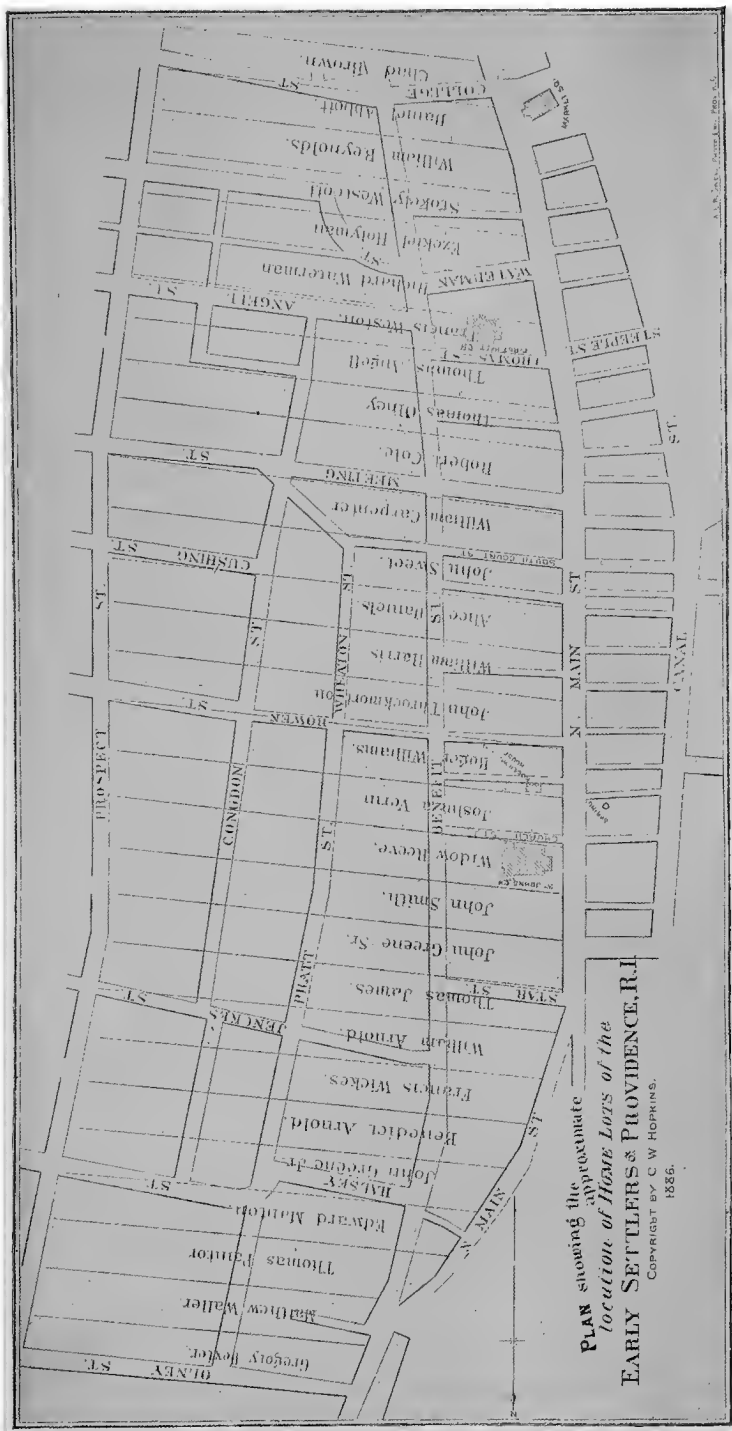 PLAN showing the
approximate
location of HOME LOTS of the
EARLY SETTLERS of PROVIDENCE, R.I.
COPYRIGHT BY C W HOPKINS.
1886.
OLNEY ST.
Gregory Dexter.
Matthew Waller
Thomas Painter
Edward Manton
HALSEY ST.
John Greene Jr.
Benedict Arnold.
Francis Wickes.
William Arnold.
JENCKES ST.
Thomas James.
STAR ST.
John Greene Sr.
John Smith.
Widow Reeve.
ST JOHNS CH
CHURCH ST
Joshua Verin
Roger Williams.
SPRING
BOWEN ST.
John Throckmorton
William Harris
Alice Daniels.
John Sweet.
CUSHING ST.
SOUTH COURT ST
William Carpenter
MEETING ST.
Robert Cole.
Thomas Olney
Thomas Angell
THOMAS ST
Francis Weston.
ANGELL ST.
Richard Waterman
WATERMAN ST.
Ezekiel Holyman
Stokely Westcott
William Reynolds.
Daniel Abbott.
COLLEGE ST
Chad Brown.
PROSPECT ST.
CONGDON ST.
PRATT ST.
WHEATON ST
BENEFIT ST
N. MAIN ST
N. MAIN ST
CANAL ST.
STEEPLE ST.
MARKET SQ.
N